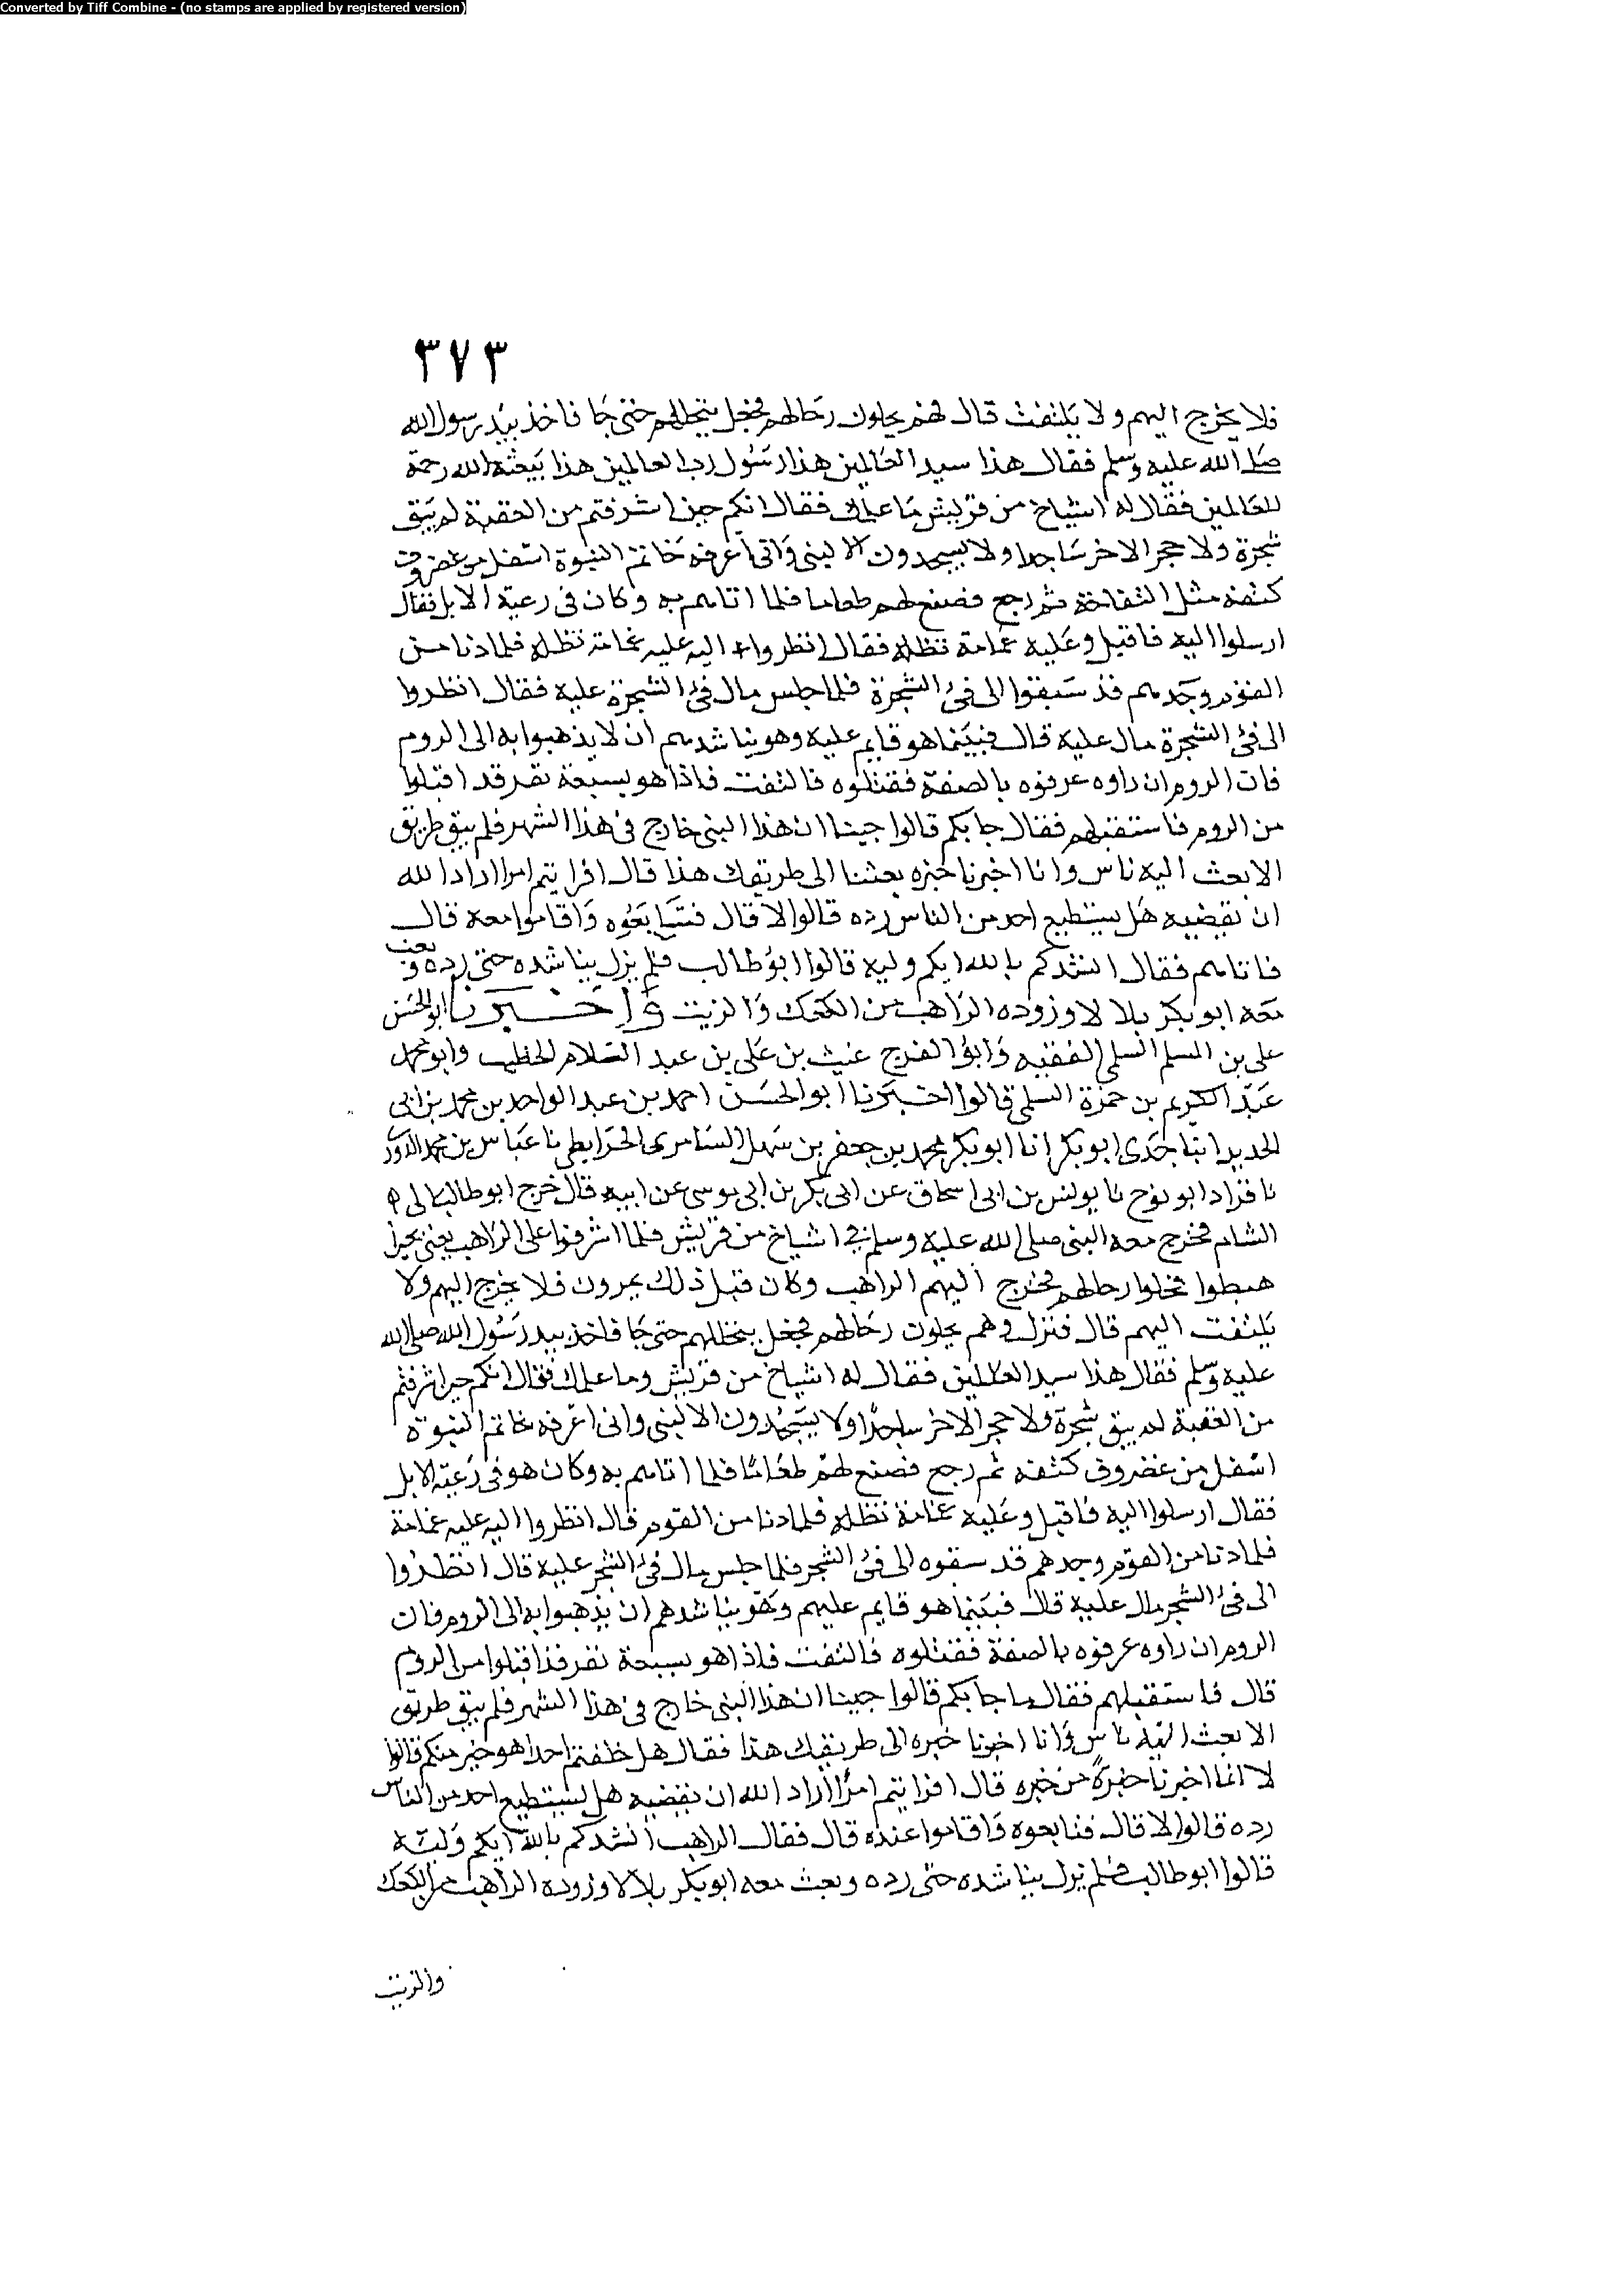 Converted by Tiff Combine - (no stamps are applied by registered version)
٣٧٣
فلا يخرج اليهم ولا يلتفت قال فهم يحلون رحالهم فجعل يتخللهم حتى جا فاخذ بيد رسول الله
صلى الله عليه وسلم فقال هذا سيد العالمين هذا رسول رب العالمين هذا يبعثه الله رحمة
للعالمين فقال له اشياخ من قريش ما علمك فقال انكم حين اشرفتم من العقبة لم يبق
شجرة ولا حجر الا خر ساجدا ولا يسجدون الا لنبي واني اعرفه خاتم النبوة اسفل من غضروف
كتفه مثل التفاحة ثم رجع فصنع لهم طعاما فلما اتاهم به وكان في رعية الابل فقال
ارسلوا اليه فاقبل وعليه غمامة تظله فقال انظروا اليه عليه غمامة تظله فلما دنا من
القوم وجدهم قد سبقوا الى فئ الشجرة فلما جلس مال فئ الشجرة عليه فقال انظروا
الى فئ الشجرة مال عليه قال فبينما هو قايم عليه وهو يناشدهم ان لا يذهبوا به الى الروم
فان الروم ان راوه عرفوه بالصفة فقتلوه فالتفت فاذا هو بسبعة نفر قد اقبلوا
من الروم فاستقبلهم فقال جا بكم قالوا جينا ان هذا النبي خارج في هذا الشهر فلم يبق طريق
الا بعث اليه ناس وانا اخبرنا خبره بعثنا الى طريقك هذا قال افرايتم امرا اراد الله
ان يقضيه هل يستطيع احد من الناس رده قالوا لا قال فتبايعوه واقاموا معه قال
فاتاهم فقال انشدكم بالله ايكم وليه قالوا ابو طالب فلم يزل يناشده حتى رده وبعث
معه ابو بكر بلالا وزوده الراهب من الكعك والزيت واخبرنا ابو الحسن
علي بن المسلم السلمي الفقيه وابو الفرج غيث بن علي بن عبد السلام الخطيب وابو محمد
عبد الكريم بن حمزة السلمي قالوا اخبرنا ابو الحسن احمد بن عبد الواحد بن محمد بن ابي
الحديد انبا جدي ابو بكر انا ابو بكر محمد بن جعفر بن سهل السامري الخرايطي نا عباس بن محمد الدوري
نا قراد ابو نوح نا يونس بن ابي اسحاق عن ابي بكر بن ابي موسى عن ابيه قال خرج ابو طالب الى
الشام فخرج معه النبي صلى الله عليه وسلم في اشياخ من قريش فلما اشرفوا على الراهب يعني بحيرا
هبطوا فحلوا رحالهم فخرج اليهم الراهب وكان قبل ذلك يمرون فلا يخرج اليهم ولا
يلتفت اليهم قال فنزل وهم يحلون رحالهم فجعل يتخللهم حتى جا فاخذ بيد رسول الله صلى الله
عليه وسلم فقال هذا سيد العالمين فقال له اشياخ من قريش وما علمك فقال انكم حين اشرفتم
من العقبة لم يبق شجرة ولا حجر الا خر ساجدا ولا يسجدون الا لنبي واني اعرفه خاتم النبوة
اسفل من غضروف كتفه ثم رجع فصنع لهم طعاما فلما اتاهم به وكان هو في رعية الابل
فقال ارسلوا اليه فاقبل وعليه غمامة تظله فلما دنا من القوم قال انظروا اليه عليه غمامة
فلما دنا من القوم وجدهم قد سبقوه الى فئ الشجر فلما جلس مال فئ الشجر عليه قال انظروا
الى فئ الشجر مال عليه قال فبينما هو قايم عليهم وهو يناشدهم ان يذهبوا به الى الروم فان
الروم ان راوه عرفوه بالصفة فقتلوه فالتفت فاذا هو بسبعة نفر قد اقبلوا من الروم
قال فاستقبلهم فقال ما جا بكم قالوا جينا ان هذا النبي خارج في هذا الشهر فلم يبق طريق
الا بعث اليه ناس وانا اخبرنا خبره الى طريقك هذا فقال هل خلفتم احدا هو خير منكم قالوا
لا انما اخبرنا خبره قال افرايتم امرا اراد الله ان يقضيه هل يستطيع احد من الناس
رده قالوا لا قال فتابعوه واقاموا عنده قال فقال الراهب انشدكم بالله ايكم وليه
قالوا ابو طالب فلم يزل يناشده حتى رده وبعث معه ابو بكر بلالا وزوده الراهب من الكعك
والزيت